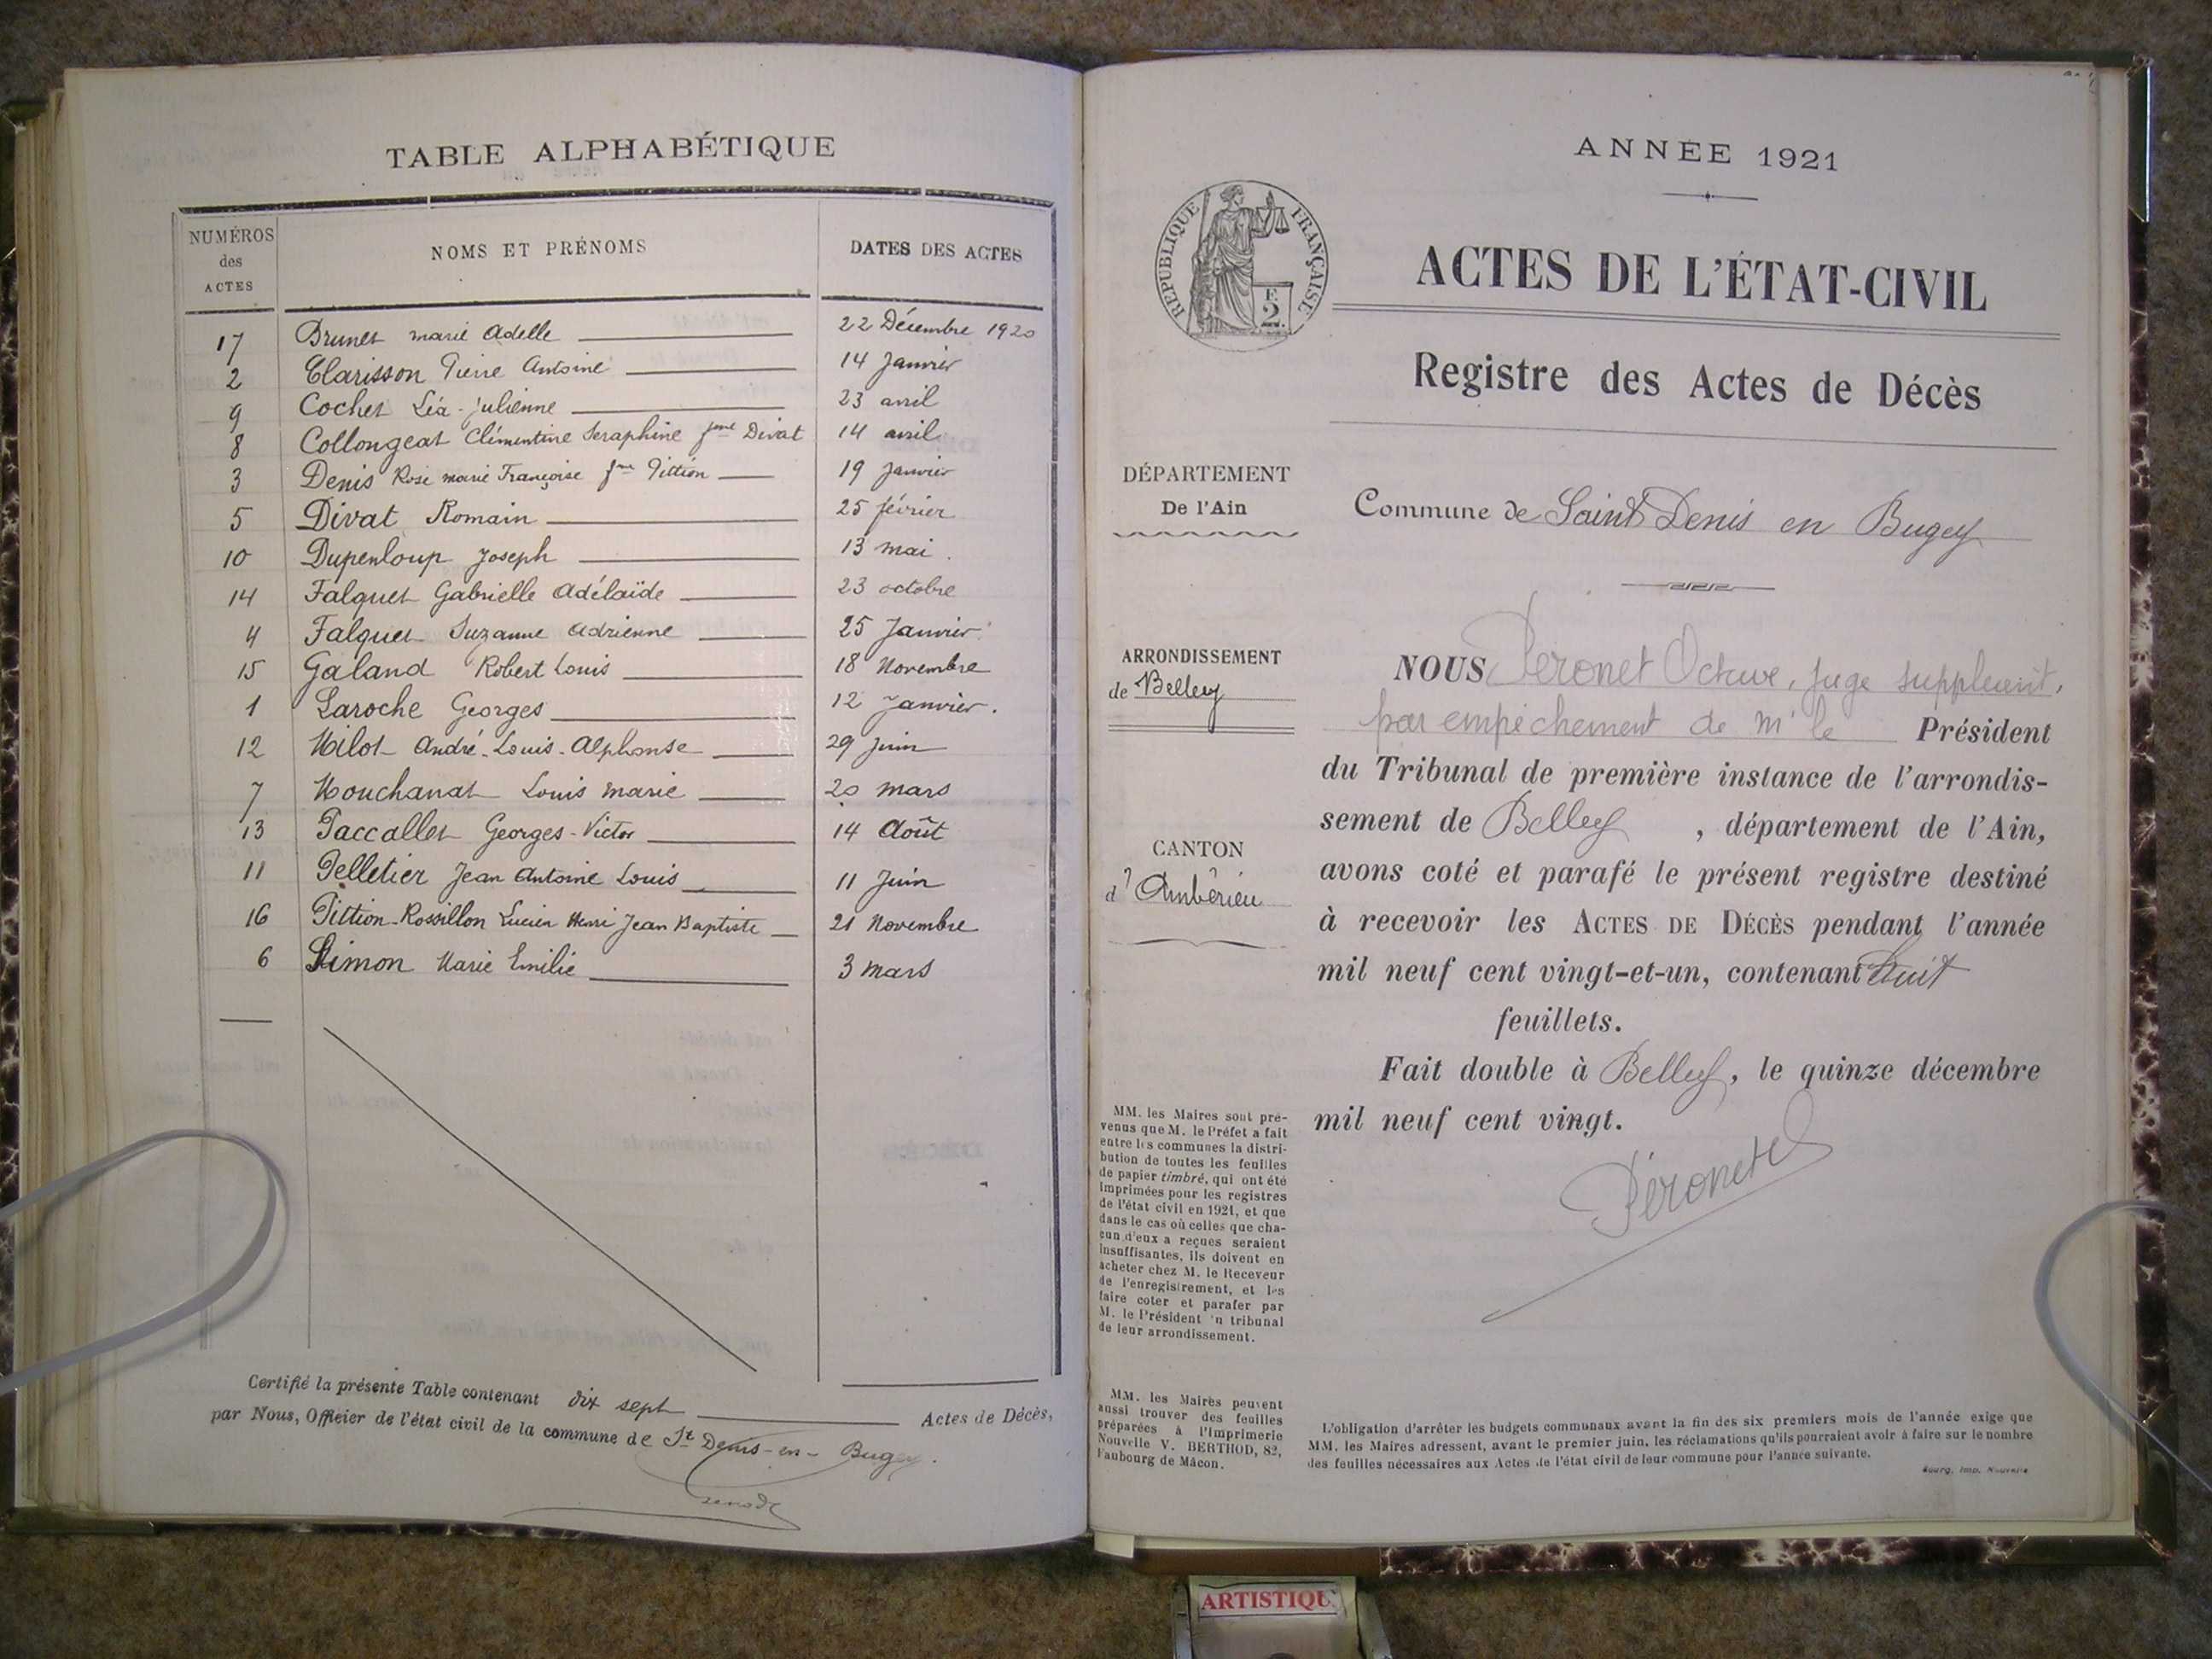 TABLE ALPHABÉTIQUE
NUMÉROS des ACTES NOMS ET PRÉNOMS DATES DES ACTES
17 Brunet marie Adelle 22 Décembre 1920
2 Clarisson Pierre Antoine 14 Janvier
9 Cochet Léa-Julienne 23 avril
8 Collongeat Clémentine Seraphine fme Divat 14 avril
3 Denis Rose marie Françoise fme Pittion 19 Janvier
5 Divat Romain 25 février
10 Dupenloup Joseph 13 mai.
14 Falquet Gabrielle Adélaïde 23 octobre
4 Falquet Suzanne Adrienne 25 Janvier
15 Galand Robert Louis 18 Novembre
1 Laroche Georges 12 Janvier.
12 Milot André-Louis-Alphonse 29 Juin
7 Mouchanat Louis Marie 20 mars
13 Paccallet Georges-Victor 14 Août
11 Pelletier Jean Antoine Louis 11 Juin
16 Pittion-Rossillon Lucien Henri Jean Baptiste 21 Novembre
6 Simon Marie Emilie 3 mars
Certifié la présente Table contenant dix sept Actes de Décès,
par Nous, Officier de l'état civil de la commune de St Denis-en-Bugey.
ANNÉE 1921
RÉPUBLIQUE FRANÇAISE
ACTES DE L'ÉTAT-CIVIL
Registre des Actes de Décès
DÉPARTEMENT
De l'Ain
Commune de Saint Denis en Bugey
ARRONDISSEMENT
de Belley
CANTON
d' Ambérieu
NOUS Péronet Octave, juge suppléant,
par empêchement de Mr le Président
du Tribunal de première instance de l'arrondis-
sement de Belley, département de l'Ain,
avons coté et parafé le présent registre destiné
à recevoir les ACTES DE DÉCÈS pendant l'année
mil neuf cent vingt-et-un, contenant huit
feuillets.
Fait double à Belley, le quinze décembre
mil neuf cent vingt.
Péronet
MM. les Maires sont pré-
venus que M. le Préfet a fait
entre les communes la distri-
bution de toutes les feuilles
de papier timbré, qui ont été
imprimées pour les registres
de l'état civil en 1921, et que
dans le cas où celles que cha-
cun d'eux a reçues seraient
insuffisantes, ils doivent en
acheter chez M. le Receveur
de l'enregistrement, et les
faire coter et parafer par
M. le Président 'u tribunal
de leur arrondissement.
MM. les Maires peuvent
aussi trouver des feuilles
préparées à l'Imprimerie
Nouvelle V. BERTHOD, 82,
Faubourg de Mâcon.
L'obligation d'arrêter les budgets communaux avant la fin des six premiers mois de l'année exige que
MM. les Maires adressent, avant le premier juin, les réclamations qu'ils pourraient avoir à faire sur le nombre
des feuilles nécessaires aux Actes de l'état civil de leur commune pour l'année suivante.
Bourg, Imp. Nouvelle
ARTISTIQU